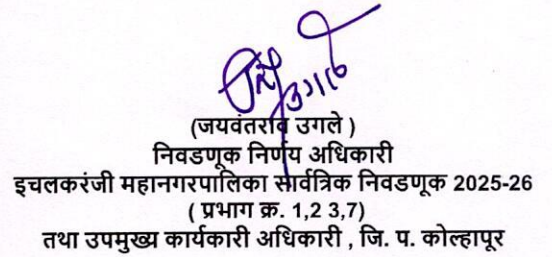 उगले
(जयवंतराव उगले )
निवडणूक निर्णय अधिकारी
इचलकरंजी महानगरपालिका सार्वत्रिक निवडणूक 2025-26
( प्रभाग क्र. 1,2 3,7)
तथा उपमुख्य कार्यकारी अधिकारी , जि. प. कोल्हापूर